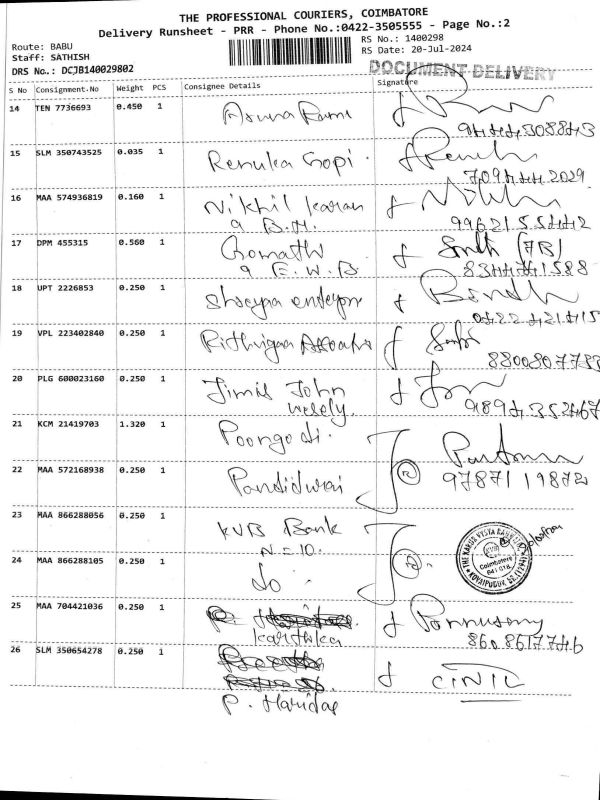 THE PROFESSIONAL COURIERS, COIMBATORE
Delivery Runsheet - PRR - Phone No.:0422-3505555 - Page No.:2
Route: BABU
Staff: SATHISH
DRS No.: DCJB140029802
RS No.: 1400298
RS Date: 20-Jul-2024
DOCUMENT DELIVERY
S No Consignment.No Weight PCS Consignee Details Signature
14 TEN 7736693 0.450 1 Aruna Rami
94444308843
15 SLM 350743525 0.035 1 Renuka Gopi. Renuka
7094442029
16 MAA 574936819 0.160 1 Nikhil Karan
9 B.H.
9962155442
17 DPM 455315 0.560 1 Gomathi (7B)
9 E.W.B 8344741588
18 UPT 2226853 0.250 1
0422 421415
19 VPL 223402840 0.250 1 Rithigaa
8800807788
20 PLG 600023160 0.250 1 Jimis John
Wesely.
9894352467
21 KCM 21419703 1.320 1 Poongodi.
22 MAA 572168938 0.250 1 Pandidurai
9787119872
23 MAA 866288056 0.250 1 KVB Bank
N=10.
24 MAA 866288105 0.250 1 Do
THE KARUR VYSYA BANK
KVB
Coimbatore
641 018
25 MAA 704421036 0.250 1 Ponnusamy
karthika 8608617746
26 SLM 350654278 0.250 1 CINIL
P. Haridas